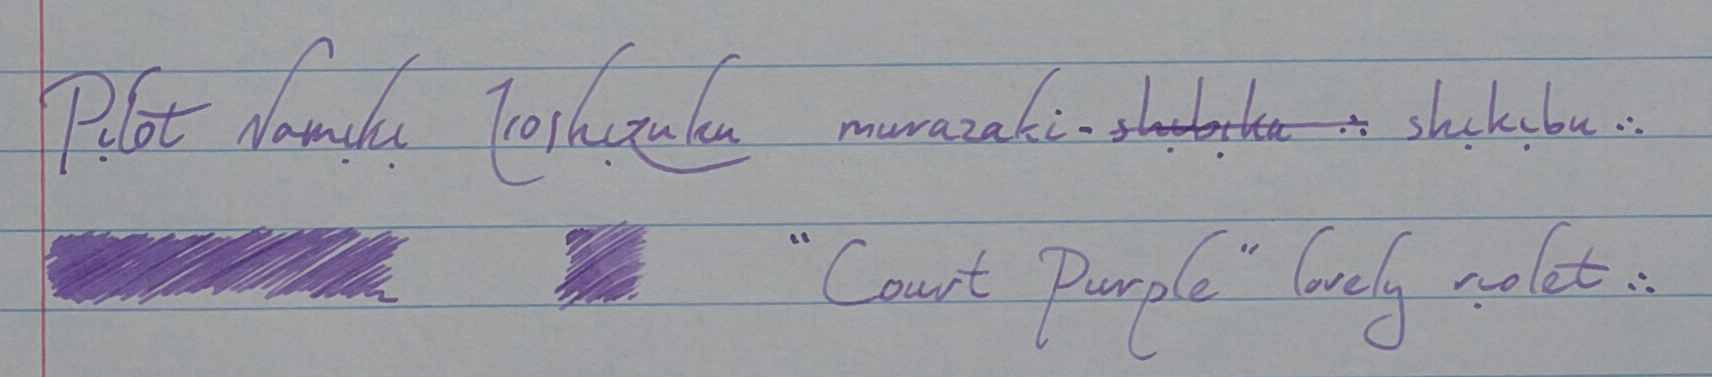 Pilot Namiki Iroshizuku murazaki-shibika ∴ shikibu ∴
"Court Purple" lovely violet ∴